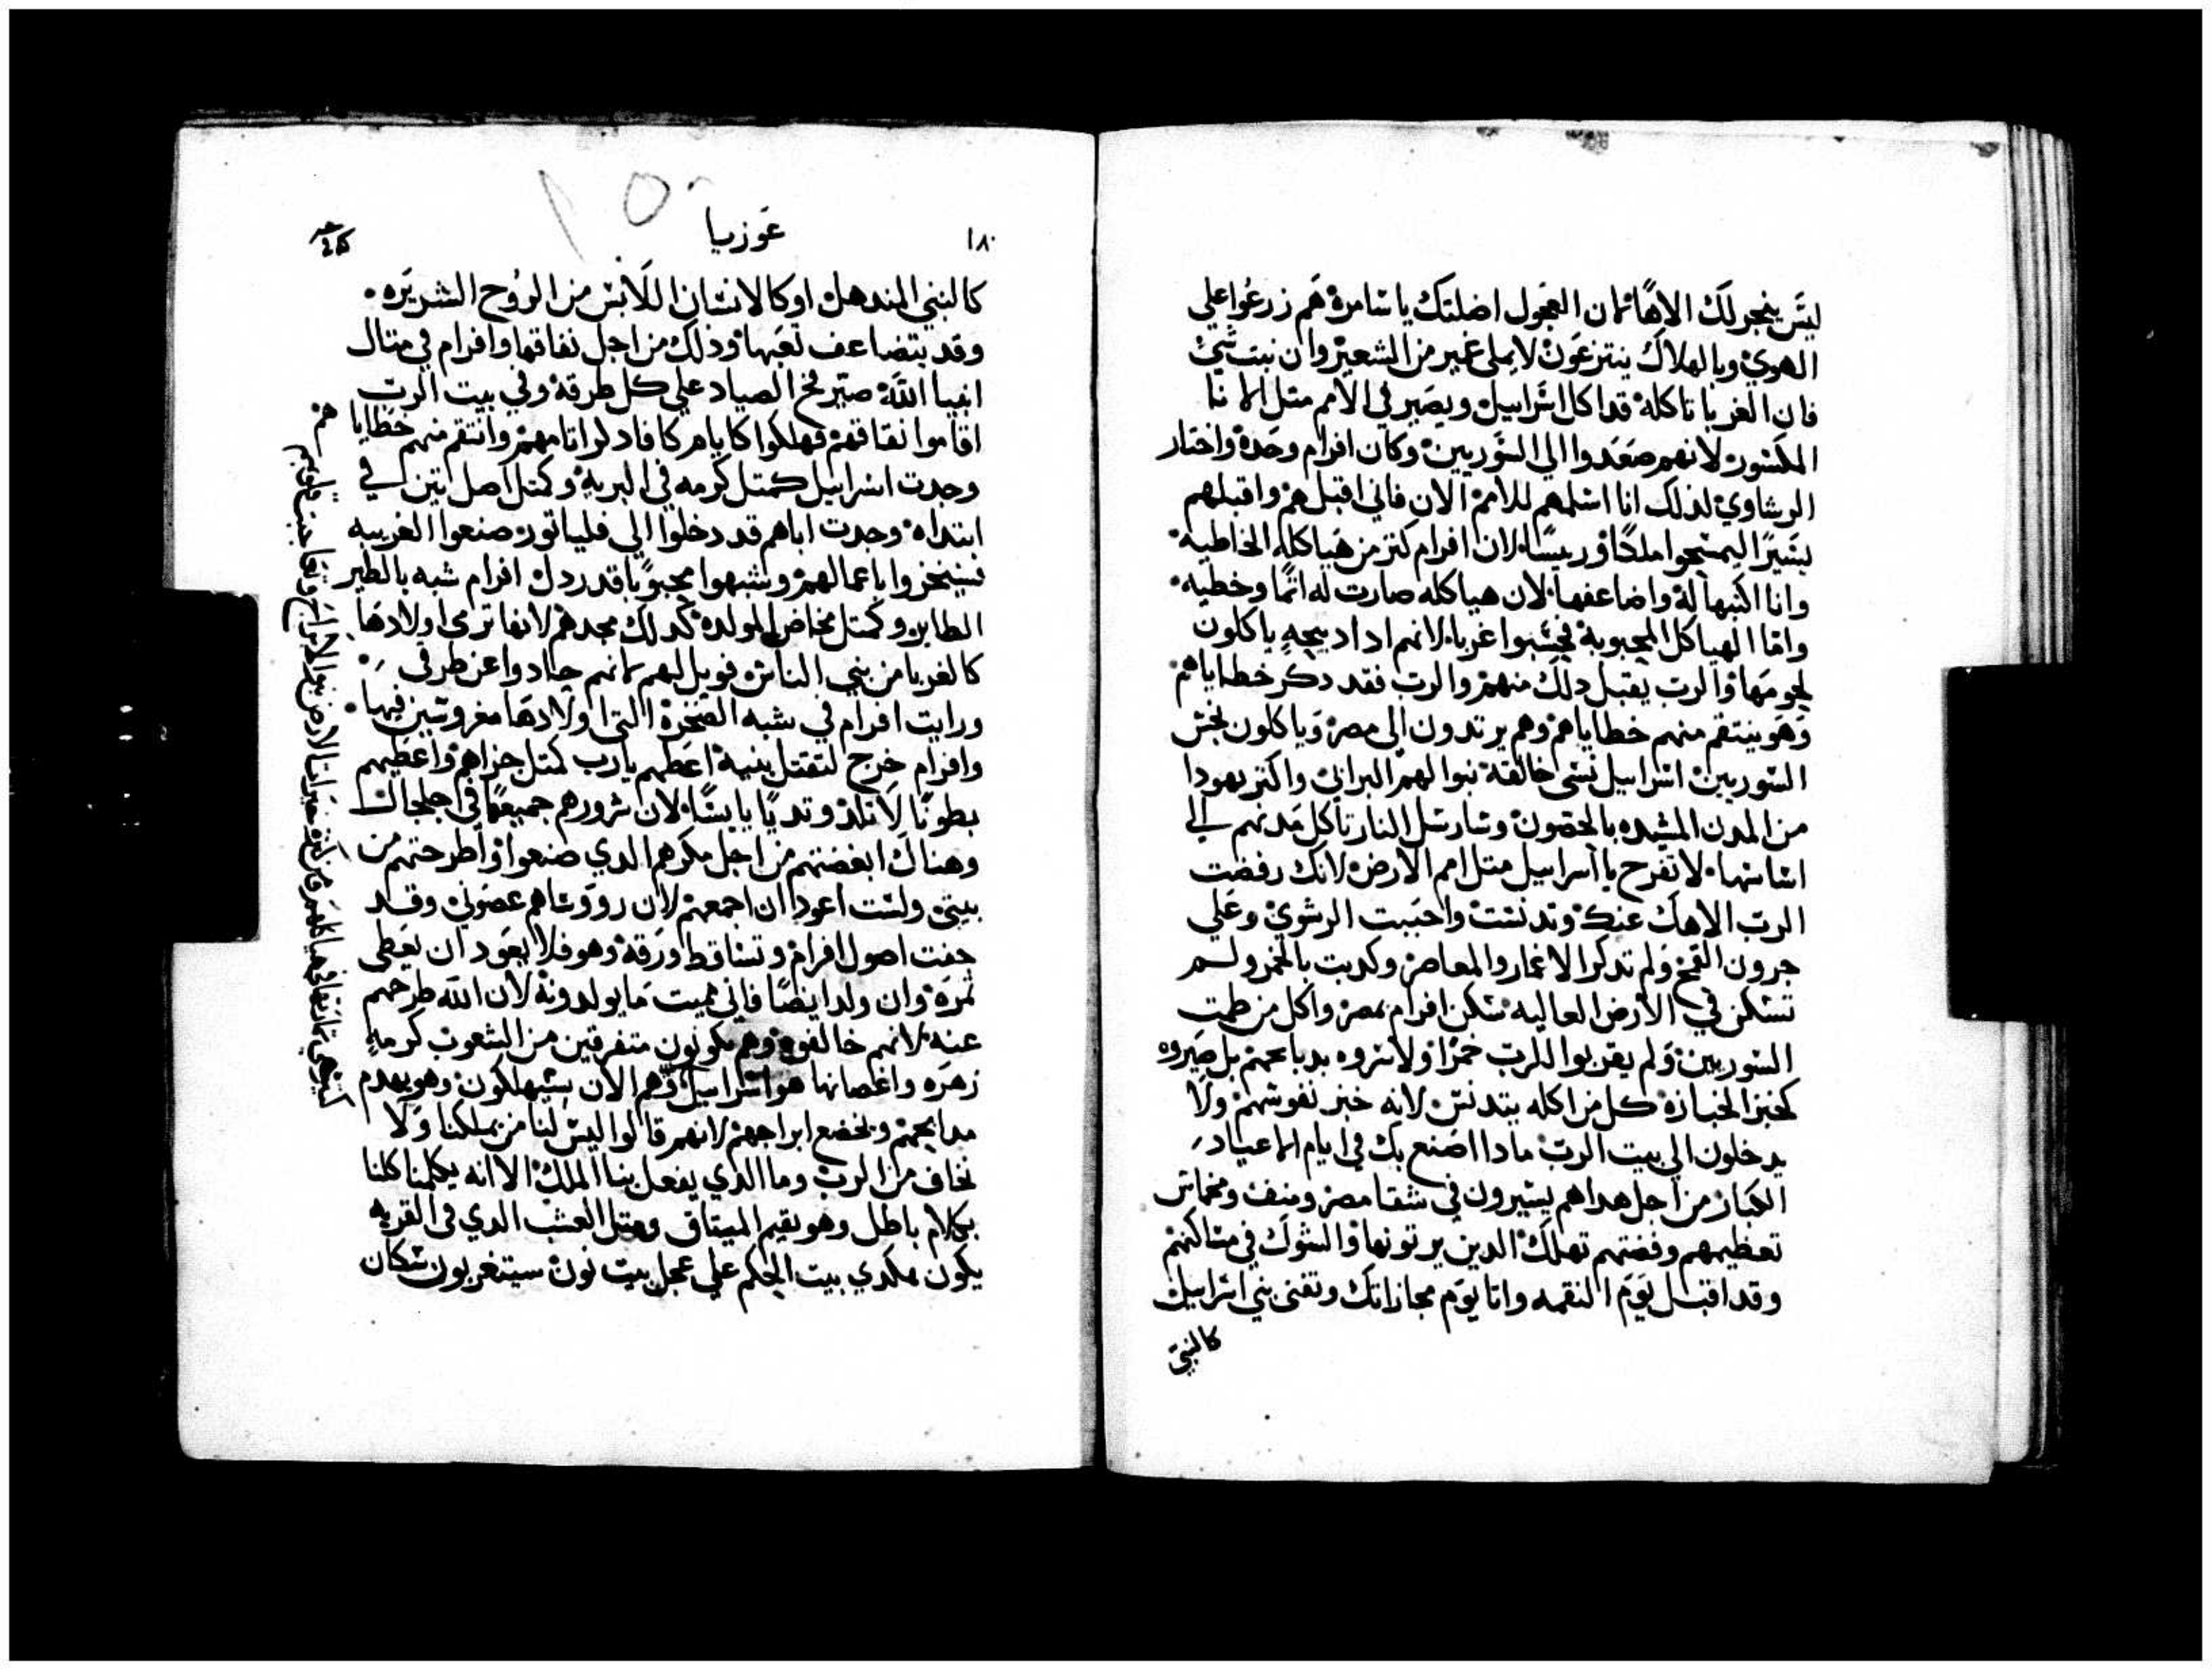 ليس ينجو لك الاها لان العجول اضلتك ياسامرة هم زرعوا على
الهوي وبالهلاك ينتزعون لا يملي غمير من الشعير وان نبت شي
فان الغربا تاكله قد اكل اسراييل ويصير في الامم متل الانا
المكسور لانهم صعدوا الى السوريين وكان افرام وحده واختار
الرشاوي لذلك انا اسلمهم للامم الان فاني اقبلهم واقبلهم
يسيرًا ليمسحوا ملكًا وريسًا لان افرام كتر من هياكله الخاطيه
وانا اكتبها له واضاعفها لان هياكله صارت له اتمًا وخطيه
واما الهياكل المحبوبة فحسبوا غربا لانهم اذا دبيحه ياكلون
لحومها والرب يقبل دلك منهم والرب فقد دكر خطاياهم
وهو ينتقم منهم خطاياهم وهم يرتدون الى مصر وياكلون نجس
السوريين اسراييل نسى خالقه بنوا لهم البراني واكتر يهودا
من المدن المشيده بالحصون وسارسل النار تاكل مدنهم الي
اساسها لا تفرح يا اسراييل متل امم الارض لانك رفضت
الرب الاهك عنك وتدنست واحببت الرشوي وعلى
جرون القمح ولم تدكر الاغمار والمعاصر وكدبت بالخمر ولم
تسكن في الارض العاليه سكن افرام بمصر واكل من طمت
السوريين ولم يقربوا للرب خمرًا ولا سروه بدبايحهم بل صيروه
كخبز الخبازه كل من اكله يتدنس لانه خبز نفوسهم ولا
يدخلون الي بيت الرب مادا اصنع بك في ايام الاعياد
الكبار من اجل هدا هم يسيرون في شقا مصر ومنف ومخماس
تعظيمهم وفضتهم تهلك الدين يرتونها والشوك في مساكنهم
وقد اقبل يوم النقمه واتا يوم مجازاتك وتفنى بني اسراييل
كالنبي
١٨٠
عوزيا
كالنبي المندهل او كالانسان اللابس من الروح الشريره
وقد يتضاعف تعبها ودلك من اجل نفاقها وافرام في متال
انبيا الله صير فخ الصياد على كل طرقه وفي بيت الرب
اقاموا نفاقهم فهلكوا كايام ركافا دكر اتامهم وانتقم منهم خطايا
وجدت اسراييل كمتل كرمه في البريه وكمتل اصل تين في
ابتداه وجدت اباهم قد دخلوا الى فلياتور صنعوا الغريبه
فسيخزوا باعمالهم وشبهوا محبوبًا قد ردل افرام شبه بالطير
الطاير وكمتل مخاض المولده كدلك مجدهم لانها ترمى اولادها
كالغربا من بني الناس فويل لهم لانهم حادوا عن طرقي
ورايت افرام في شبه الصخرة التي اولادها مغروسين فيها
وافرام خرج لتقتل بنيه اعطهم يارب كمتل جزاهم واعطيهم
بطونًا لا تلد وتديًا يابسًا لان شرورهم جميعها في جلجال
وهناك ابغضتهم من اجل مكرهم الدي صنعوا واطرحتهم من
بيتي ولست اعود ان اجمعهم لان رووساهم عصوني وقد
جفت اصول افرام وتساقط ورقه وهو فلا يعود ان يعطى
تمره وان ولد ايضًا فاني مميت ما يولدونه لان الله طرحهم
عنه لانهم خالفوه وهم يكونون متفرقين من الشعوب كرمه
زهره واغصانها هو اسراييل وهم الان يستهلكون وهو يهدم
مدابحهم ويخضع ابراجهم لانهم قالوا ليس لنا من يملكنا ولا
نخاف من الرب وما الدي يفعل بنا الملك الا انه يكلمنا كلنا
بكلام باطل وهو يقيم الميتاق ومتل العشب الدي في القريه
يكون هكدي بيت الحكم على عجل بيت نون سيتغربون سكان